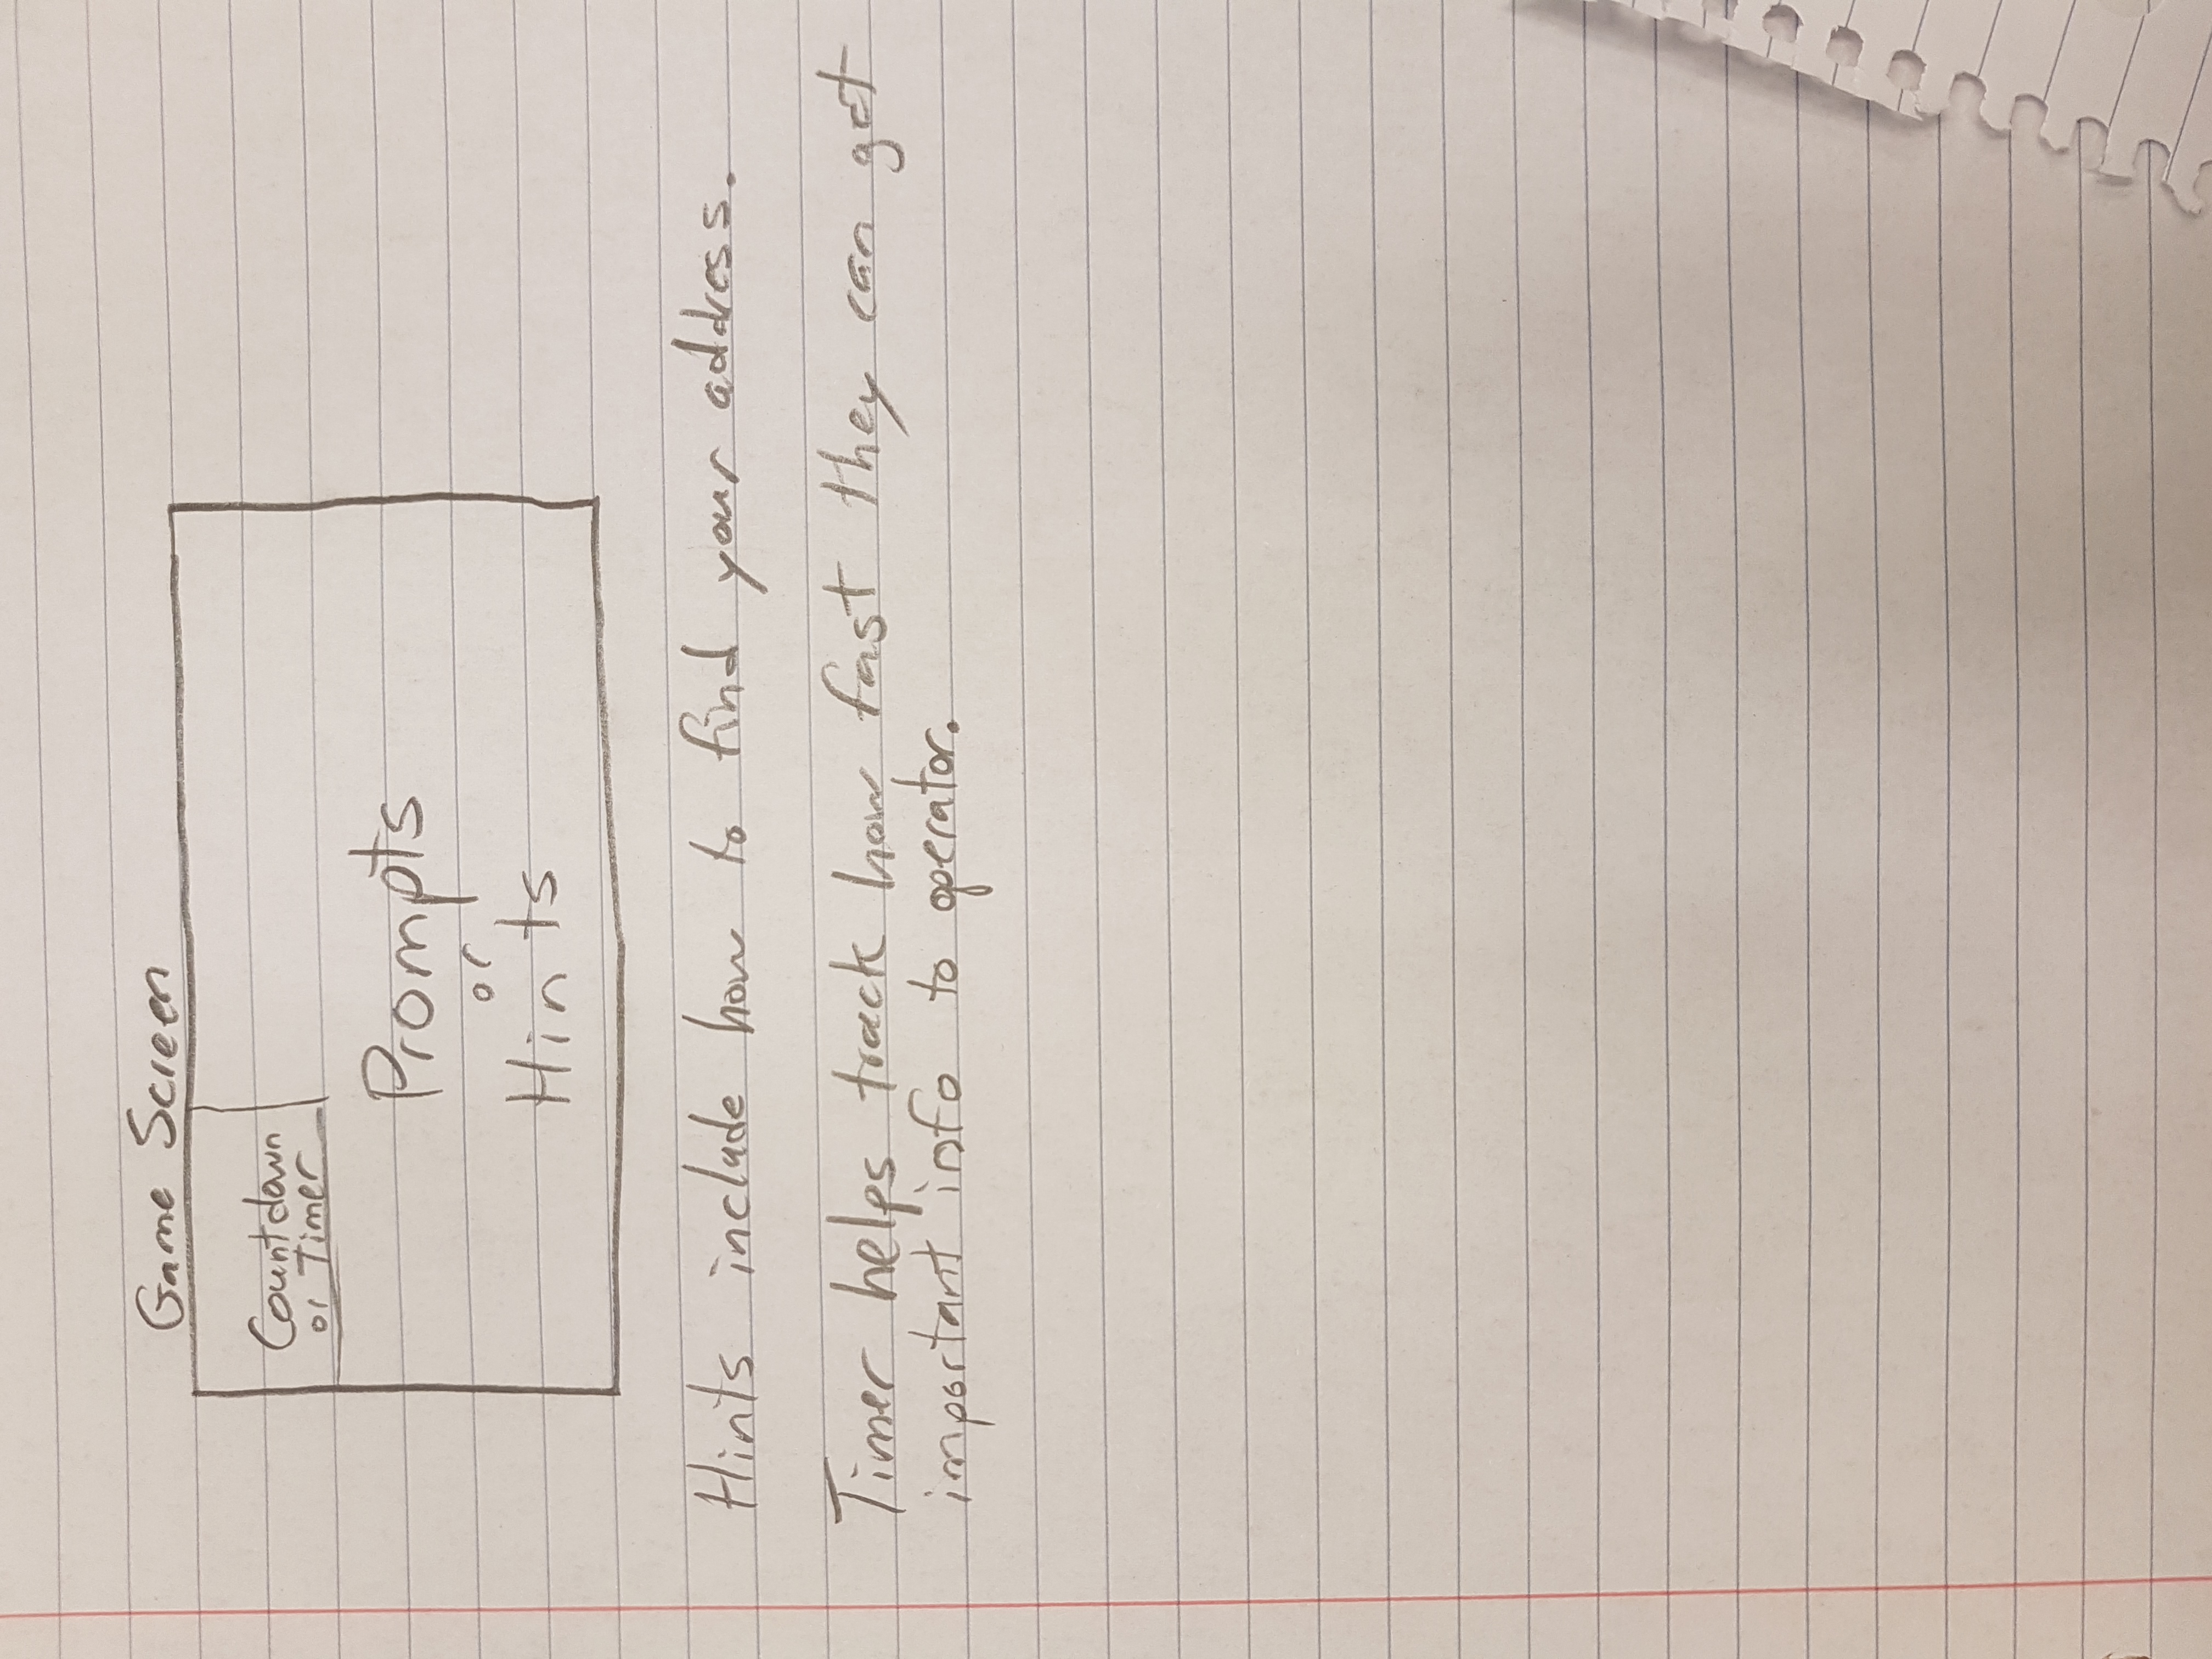 Game Screen
Countdown
or Timer
Prompts
or
Hints
Hints include how to find your address.
Timer helps track how fast they can get
important info to operator.